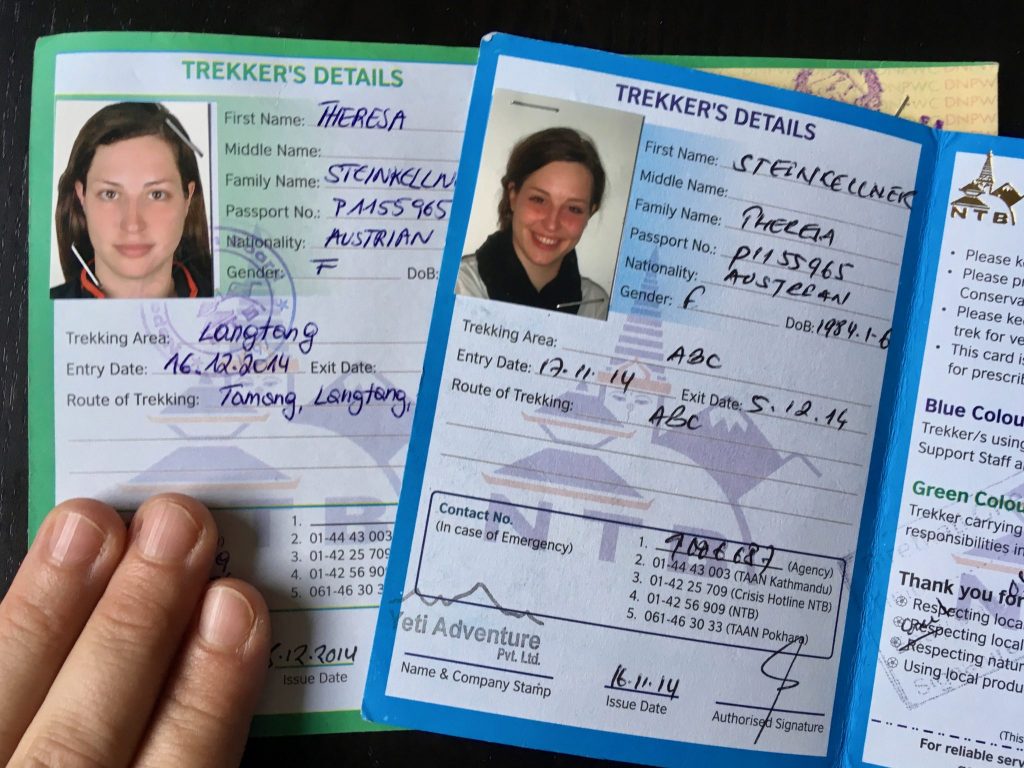 TREKKER'S DETAILS
First Name: THERESA
Middle Name:
Family Name: STEINKELLN
Passport No.: P1155965
Nationality: AUSTRIAN
Gender: F DoB:
Trekking Area: Langtang
Entry Date: 16.12.2014 Exit Date:
Route of Trekking: Tamang, Langtang,
1.
2. 01-44 43 003
3. 01-42 25 709
4. 01-42 56 90
5. 061-46 30 3
.12.2014
Issue Date
TREKKER'S DETAILS
First Name: STEINKELLNER
Middle Name:
Family Name: THERESA
Passport No.: P1155965
Nationality: AUSTREAN
Gender: F DoB: 1984.1-6
Trekking Area: ABC
Entry Date: 17.11.14 Exit Date: 5.12.14
Route of Trekking: ABC
NTB
Contact No.
(In case of Emergency)
1. (Agency)
2. 01-44 43 003 (TAAN Kathmandu)
3. 01-42 25 709 (Crisis Hotline NTB)
4. 01-42 56 909 (NTB)
5. 061-46 30 33 (TAAN Pokhara)
Yeti Adventure
Pvt. Ltd.
Name & Company Stamp
16.11.14
Issue Date
Authorised Signature
DNPWC DNPW
NTB
• Please ke
• Please pr
Conserva
• Please kee
trek for ve
• This card is
for prescrib
Blue Colou
Trekker/s using
Support Staff a
Green Colou
Trekker carrying
responsibilities in
Thank you for
Respecting loca
Respecting local
Respecting natur
Using local produ
(This
For reliable serv